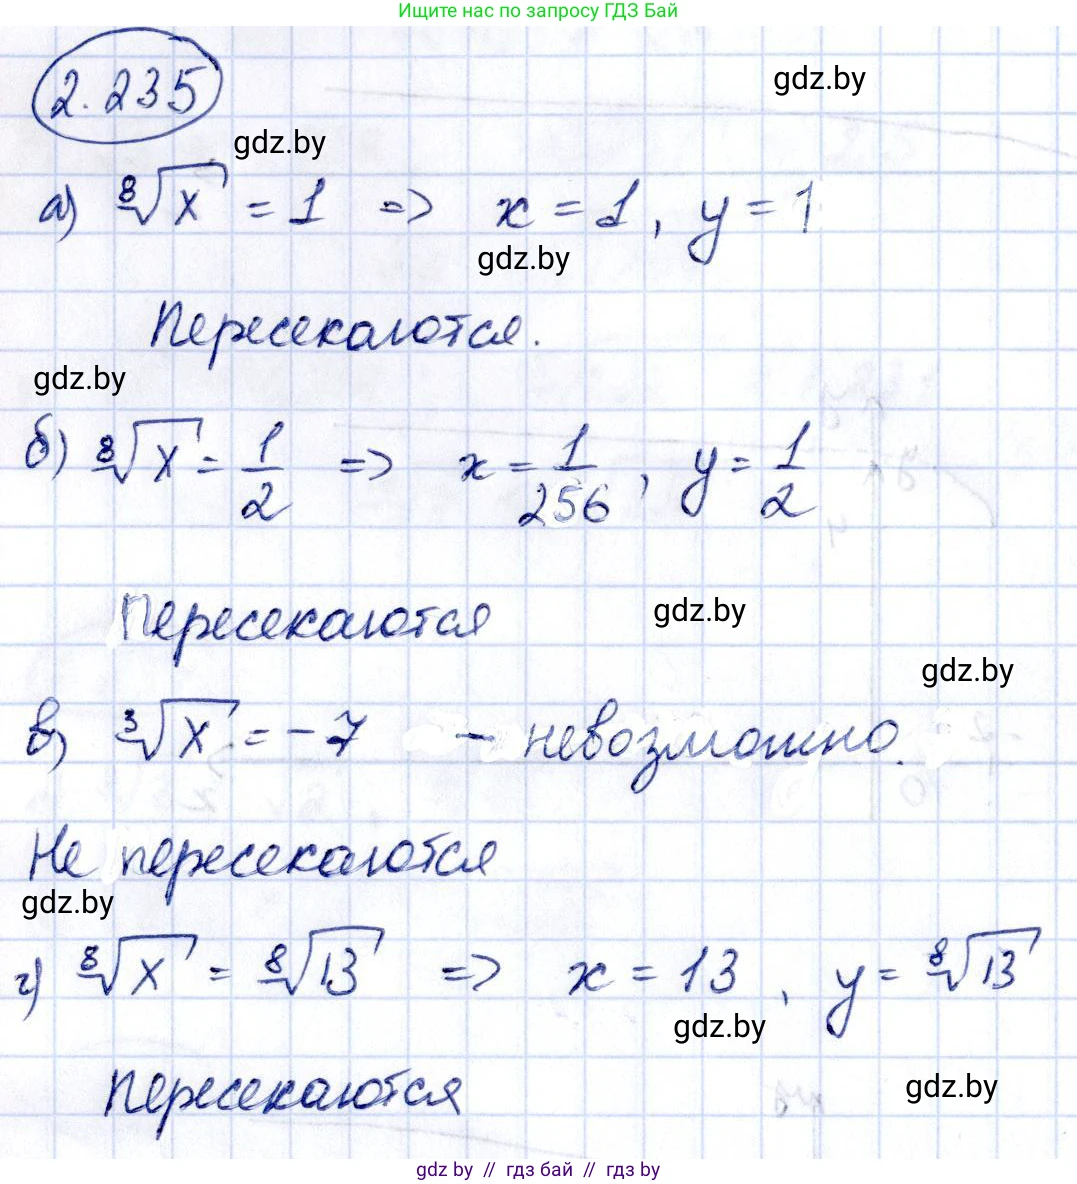 Ищите нас по запросу ГДЗ Бай
2.235
gdz.by
gdz.by
а) ⁸√x = 1 => x = 1, y = 1
gdz.by
Пересекаются.
gdz.by
б) ⁸√x = 1/2 => x = 1/256, y = 1/2
Пересекаются
gdz.by
gdz.by
в) ³√x = -7 - невозможно.
Не пересекаются
gdz.by
г) ⁸√x = ⁸√13 => x = 13, y = ⁸√13
gdz.by
Пересекаются
gdz.by
gdz by // гдз бай // гдз by